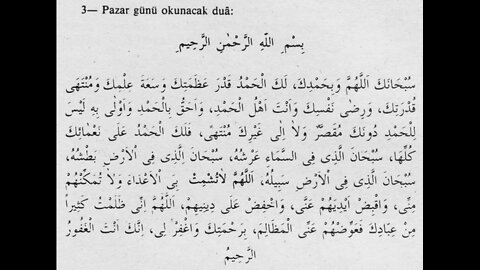 3— Pazar günü okunacak duâ:
بِسْمِ اللّٰهِ الرَّحْمٰنِ الرَّحِيمِ
سُبْحَانَكَ اَللّٰهُمَّ وَبِحَمْدِكَ، لَكَ الْحَمْدُ قَدْرَ عَظَمَتِكَ وَسَعَةَ عِلْمِكَ وَمُنْتَهٰى
قُدْرَتِكَ، وَرِضٰى نَفْسِكَ وَاَنْتَ اَهْلُ الْحَمْدِ، وَاَحَقُّ بِالْحَمْدِ وَاَوْلٰى بِهِ لَيْسَ
لِلْحَمْدِ دُونَكَ مُقَصِّرٌ وَلاَ اِلٰى غَيْرِكَ مُنْتَهًى، فَلَكَ الْحَمْدُ عَلٰى نَعْمَائِكَ
كُلِّهَا، سُبْحَانَ الَّذِى فِى السَّمَاءِ عَرْشُهُ، سُبْحَانَ الَّذِى فِى اْلاَرْضِ بَطْشُهُ،
سُبْحَانَ الَّذِى فِى اْلاَرْضِ سَبِيلُهُ، اَللّٰهُمَّ لاَتُشْمِتْ بِىَ اْلاَعْدَاءَ وَلاَ تُمَكِّنْهُمْ
مِنِّى، وَاقْبِضْ اَيْدِيَهُمْ عَنِّى، وَاحْفِضْ عَلٰى دِينِهِمْ، اَللّٰهُمَّ اِنِّى ظَلَمْتُ كَثِيرًا
مِنْ عِبَادِكَ فَعَوِّضْهُمْ عَنِّى الْمَظَالِمَ، بِرَحْمَتِكَ وَاغْفِرْ لِى، اِنَّكَ اَنْتَ الْغَفُورُ
الرَّحِيمُ